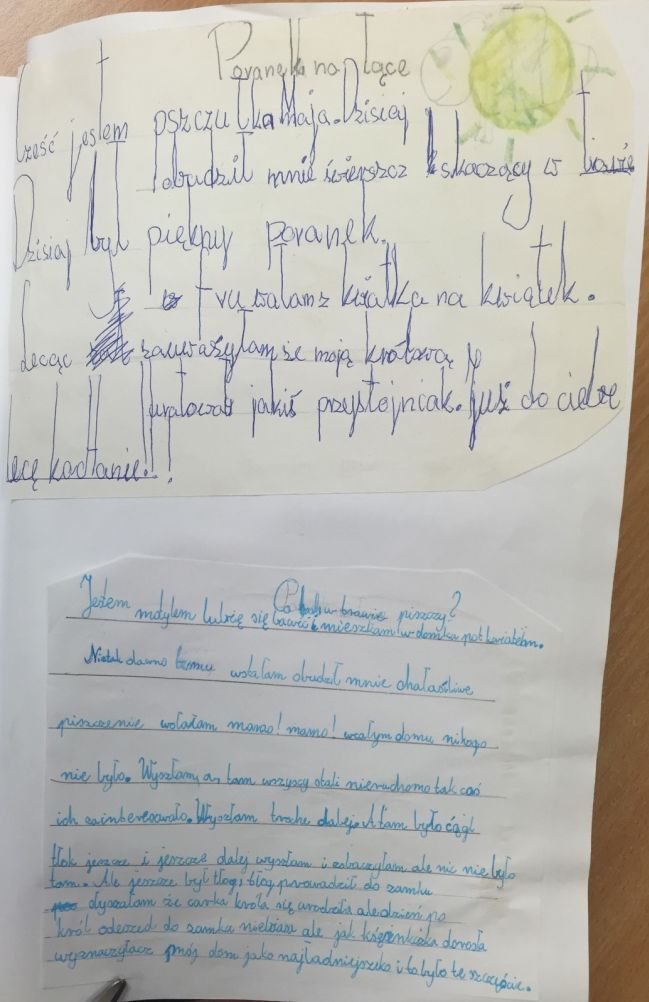 Poranek na łące
Cześć jestem pszczułka Maja. Dzisiaj
obudził mnie świerszcz skaczący w
Dzisiaj był piękny poranek.
Fruwałam z kwiatka na kwiatek.
Lecąc zauważyłam że moją królową
uratował jakiś przystojniak. Już do ciebie
lecę kochanie!!!
Co w trawie piszczy?
Jestem motylem lubię się bawić i mieszkam w domku pot kwiatkem.
Nie tak dawno temu wstałam obudził mnie chałaśliwe
piszczenie wołałam mamo! mamo! wcałym domu nikogo
nie było. Wyszłam, a tam wszyscy stali nieruchomo tak coś
ich zainteresowało. Wyszłam troche dalej. A tam było ciągl
tłok jeszcze i jeszcze dalej wyszłam i zobaczyłam ale nic nie było
tam. Ale jeszcze był tłog i tłog prowadził do zamku
dyszałam że carka króla się urodziła ale dzień po
król odeszed do zamka ale jak dorosła
mój dom jako najładniejszeko i to było te szczęście.